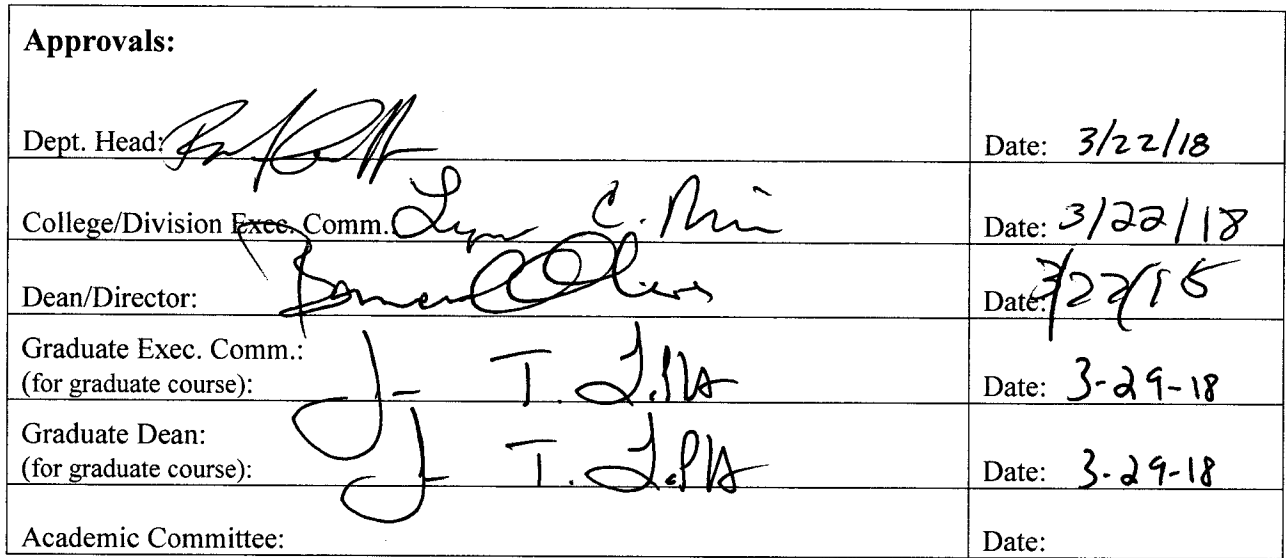 Approvals:
Dept. Head: Date: 3/22/18
College/Division Exec. Comm. C. Date: 3/22/18
Dean/Director: Date: 3/22/18
Graduate Exec. Comm.:
(for graduate course): J T. Date: 3-29-18
Graduate Dean:
(for graduate course): J T. Date: 3-29-18
Academic Committee: Date: